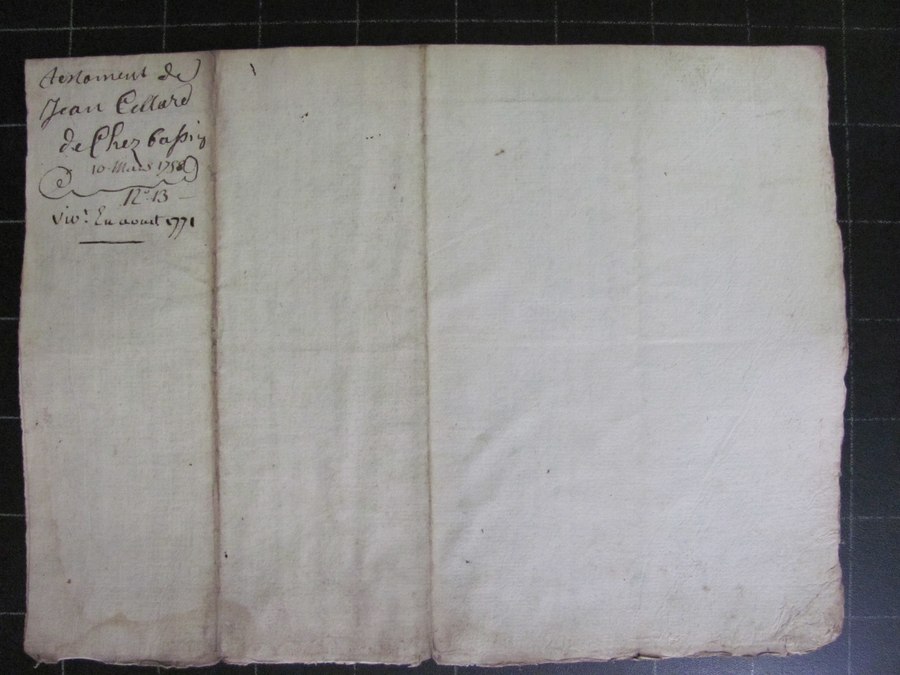 testament de
Jean Cellard
de Chez bassin
10 Mars 1758
N° 13
viv.t En aoust 1771